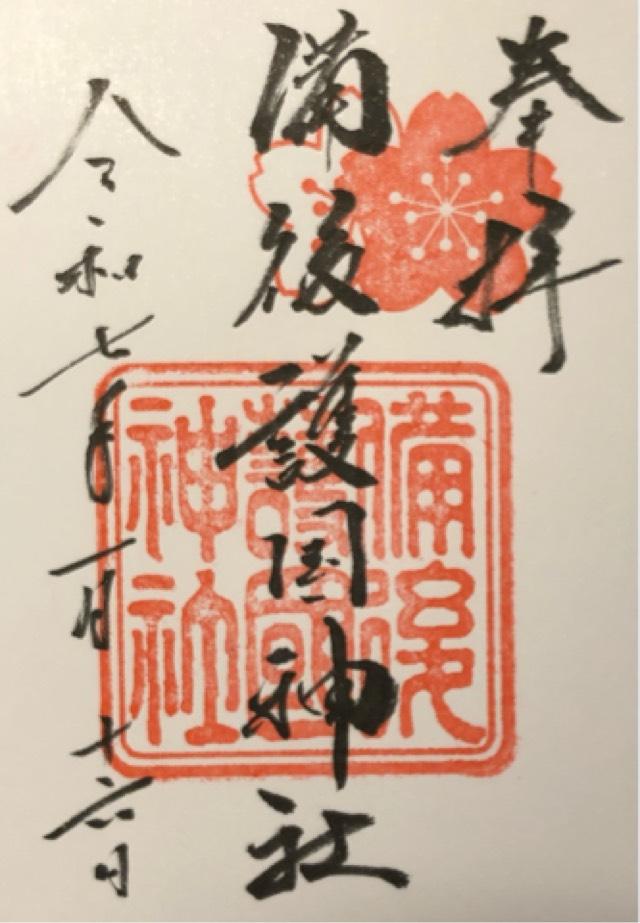 奉拝
備後護国神社
備後
護国
神社
令和七年一月十六日